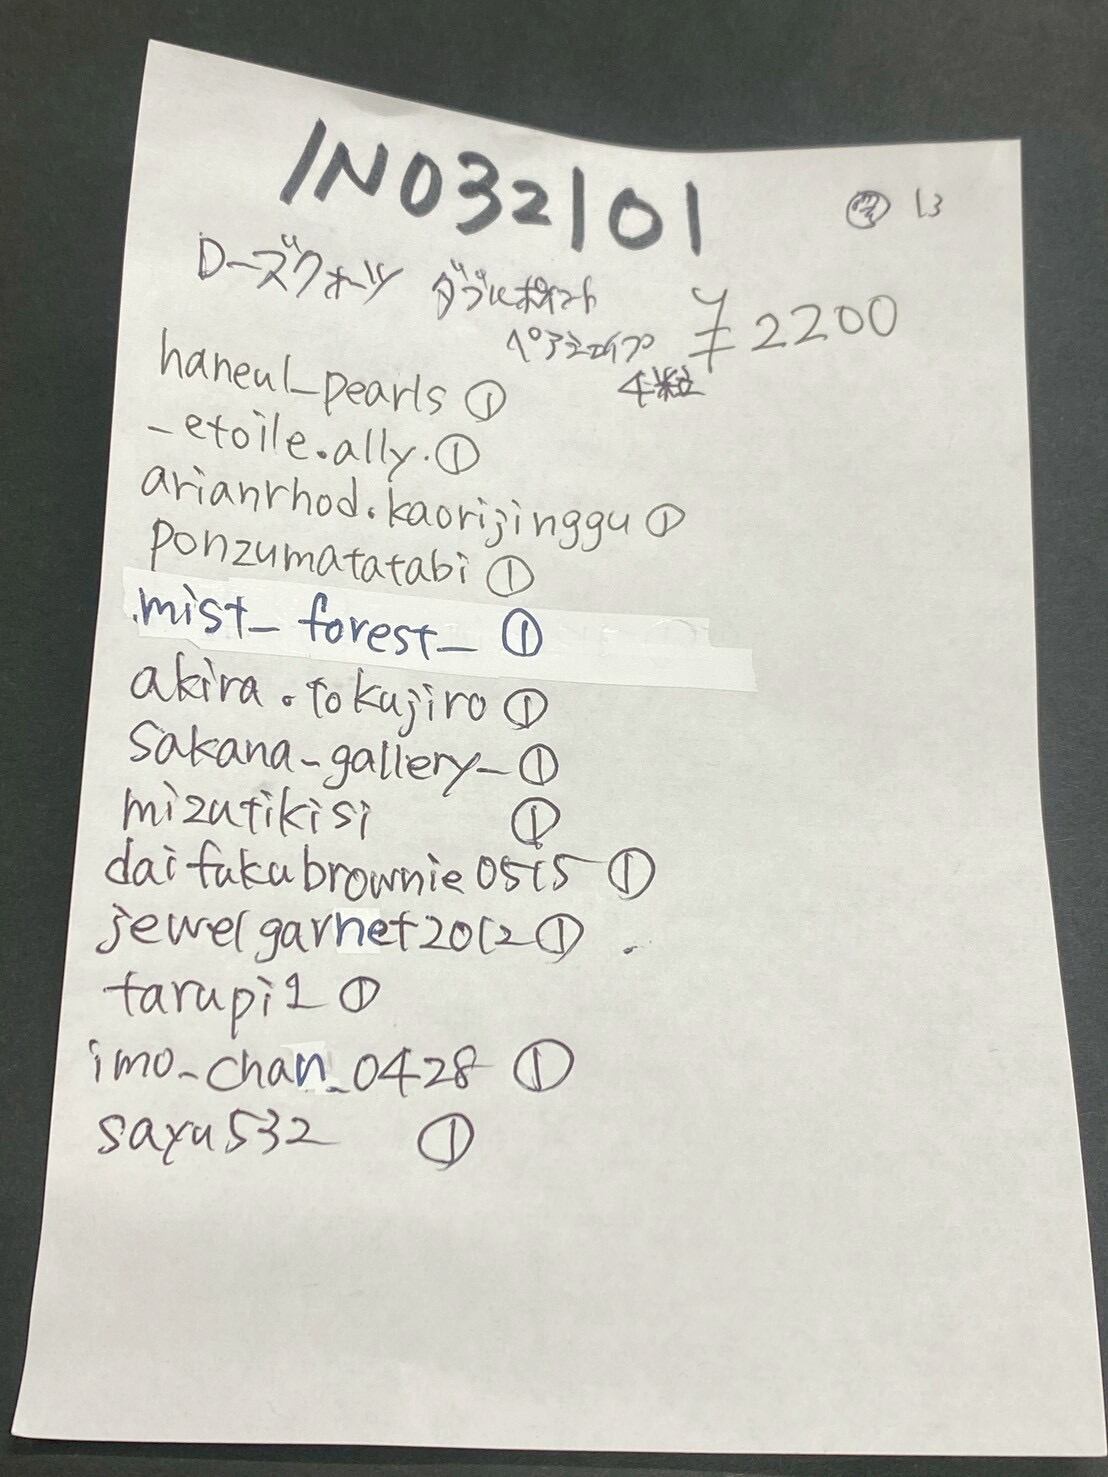 IN032101
13
ローズクォーツ ダブルポイント
ペアシェイプ ¥2200
4粒
haneul_pearls ①
_etoile.ally. ①
arianrhod.kaorijinggu ①
ponzumatatabi ①
.mist_forest_ ①
akira.tokujiro ①
sakana_gallery_ ①
mizutikisi ①
daifukubrownie0515 ①
jewelgarnet2012 ①
tarupi1 ①
imo_chan_0428 ①
sayu532 ①